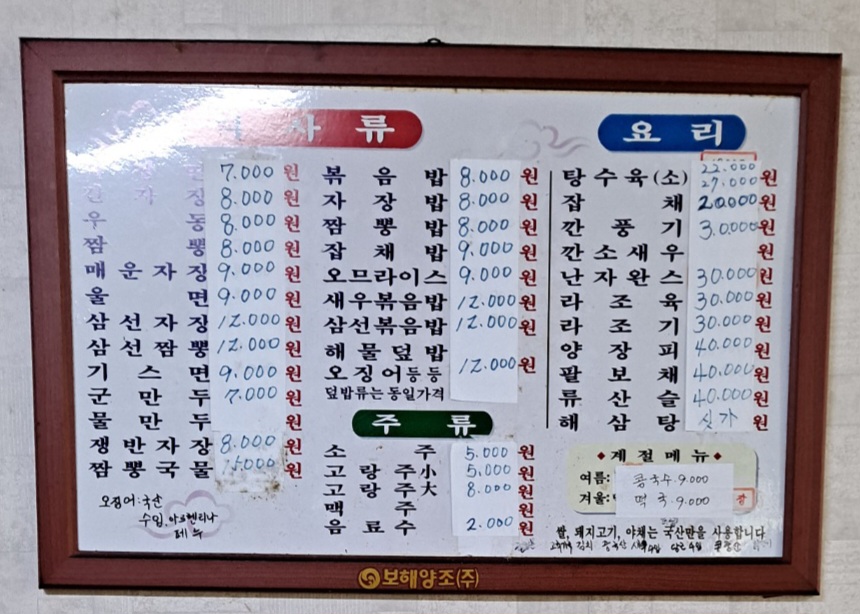 사 류
7.000 원
자 장 8.000 원
우 동 8.000 원
짬 뽕 8.000 원
매 운 자 장 9.000 원
울 면 9.000 원
삼 선 자 장 12.000 원
삼 선 짬 뽕 12.000 원
기 스 면 9.000 원
군 만 두 7.000 원
물 만 두 원
쟁 반 자 장 8.000 원
짬 뽕 국 물 원
오징어:국산
수입.아르헨티나
페루
볶 음 밥 8.000 원
자 장 밥 8.000 원
짬 뽕 밥 8.000 원
잡 채 밥 9.000 원
오므라이스 9.000 원
새우볶음밥 12.000 원
삼선볶음밥 12.000 원
해 물 덮 밥
오징어등등 12.000 원
덮밥류는 동일가격
주 류
소 주 5.000 원
고 량 주 小 5,000 원
고 량 주 大 8.000 원
맥 주 원
음 료 수 2.000 원
요 리
탕 수 육 (소) 22.000 27.000 원
잡 채 20000 원
깐 풍 기 30.000 원
깐 소 새 우 원
난 자 완 스 30.000 원
라 조 육 30.000 원
라 조 기 30.000 원
양 장 피 40.000 원
팔 보 채 40.000 원
류 산 슬 40.000 원
해 삼 탕 싯가 원
◆계절메뉴◆
여름: 콩국수.9.000
겨울: 떡 국.9.000
쌀, 돼지고기, 야채는 국산만을 사용합니다
김치 중국산
보해양조(주)